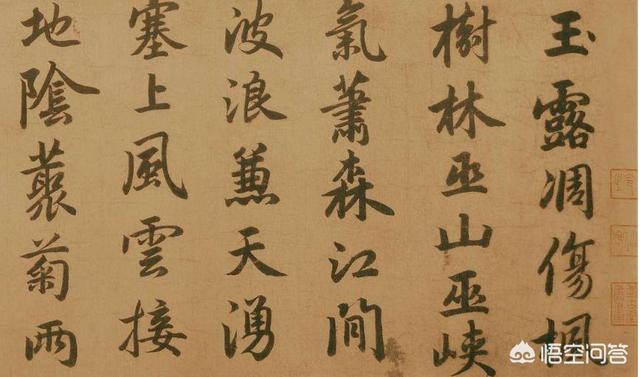 玉露凋傷楓
樹林巫山巫峽
氣蕭森江間
波浪兼天湧
塞上風雲接
地陰叢菊兩
悟空问答